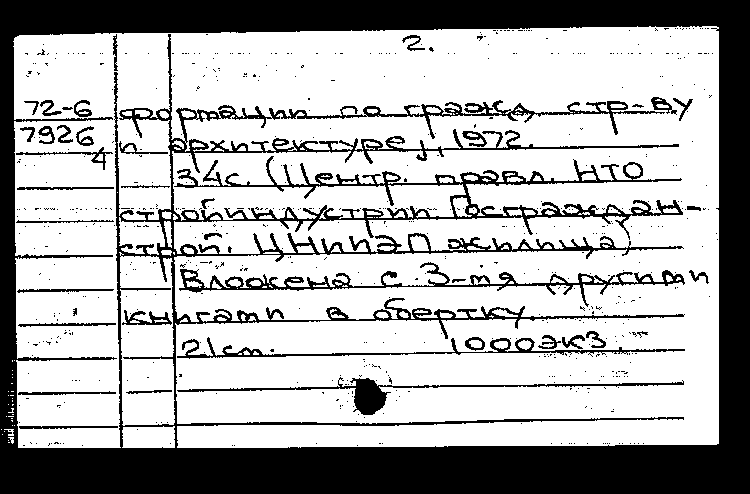 2.
72-6 формации по гражд. стр-ву
7926 и архитектуре], 1972.
4 34с. (Центр. правл. НТО
стройиндустрии. Госграждан-
строй. ЦНИИЭП жилища)
Вложена с 3-мя другими
книгами в обертку.
21см. 1000экз.